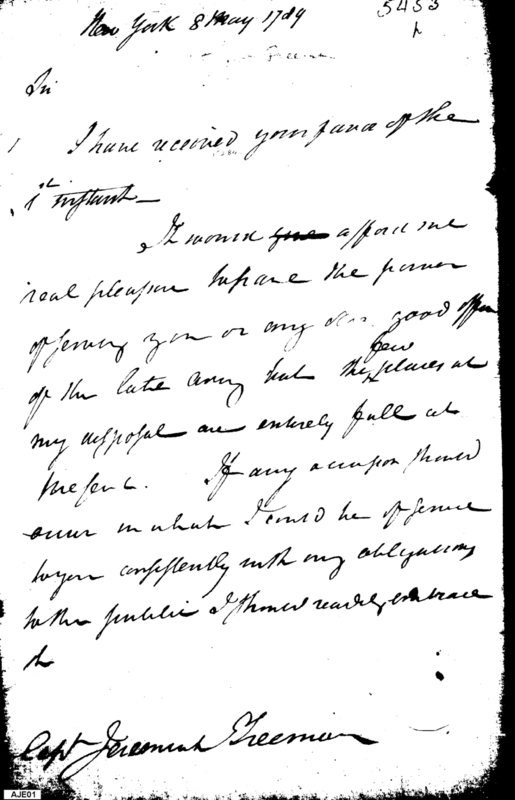 New York 8 May 1789
5453
Sir
I have received your favor of the
1st instant—
It would give afford me
real pleasure to have the power
of serving you or any other good officer
of the late army but the few places at
my disposal are entirely full at
present. If any occasion should
occur in which I could be of service
to you consistently with my obligations
to the public I should readily embrace
it
Capt Jeremiah Freeman
AJE01